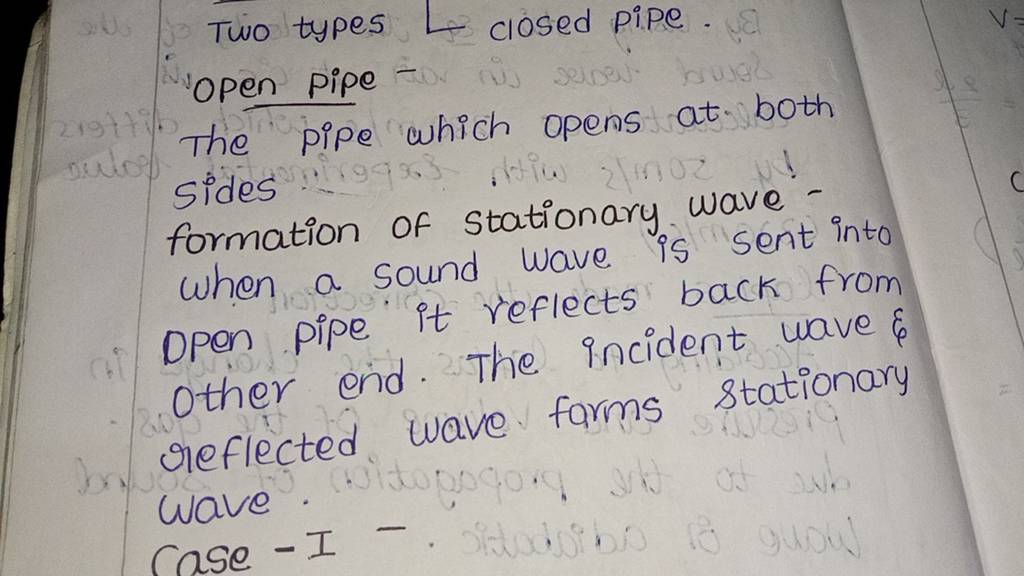 Two types ↳ closed pipe.
open pipe -
The pipe which opens at both
sides
formation of stationary wave -
when a sound wave is sent into
open pipe it reflects back from
other end. The incident wave &
reflected wave forms stationary
wave.
Case - I -